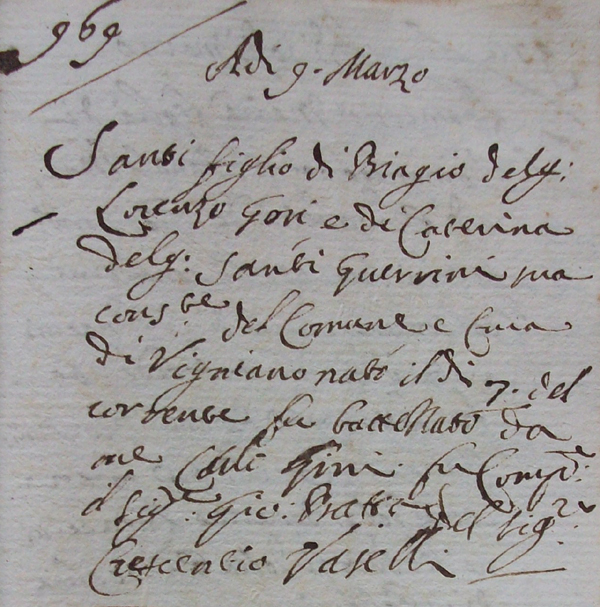 969
Adi 9. Marzo
Santi figlio di Biagio del q:
Lorenzo Gori e di Caterina
del q: Santi Guerrini sua
cons.te del Comune e Cura
di Vigniano nato il di 7. del
corrente fu battezzato da
me Gini fu Comp.e:
il Sig.re Gio: Batta del Sig.re
Crescentio Vaselli